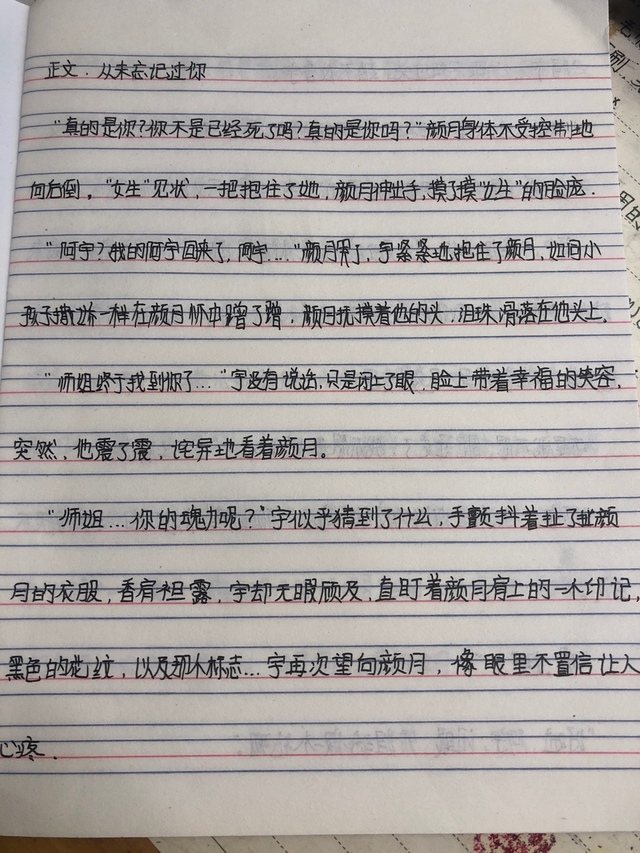 正文.从未忘记过你
“真的是你?你不是已经死了吗?真的是你吗?”颜月身体不受控制地
向右倒。“女生”见状,一把抱住了她,颜月抻出手,摸了摸“女生”的脸庞.
“阿宇?我的阿宇回来了,阿宇....”颜月哭了,宇紧紧地抱住了颜月,如同小
孩子撒娇一样在颜月怀中蹭了蹭,颜月抚摸着他的头,泪珠滑落在他头上.
“师姐终于找到你了...”宇没有说话,只是闭上了眼,脸上带着幸福的笑容,
突然,他震了震,诧异地看着颜月。
“师姐...你的魂力呢?”宇似乎猜到了什么,手颤抖着扯了扯颜
月的衣服,香肩袒露,宇却无暇顾及,直盯着颜月肩上的一个印记,
黑色的花纹,以及那个标志...宇再次望向颜月,眼里不置信让人
心疼.